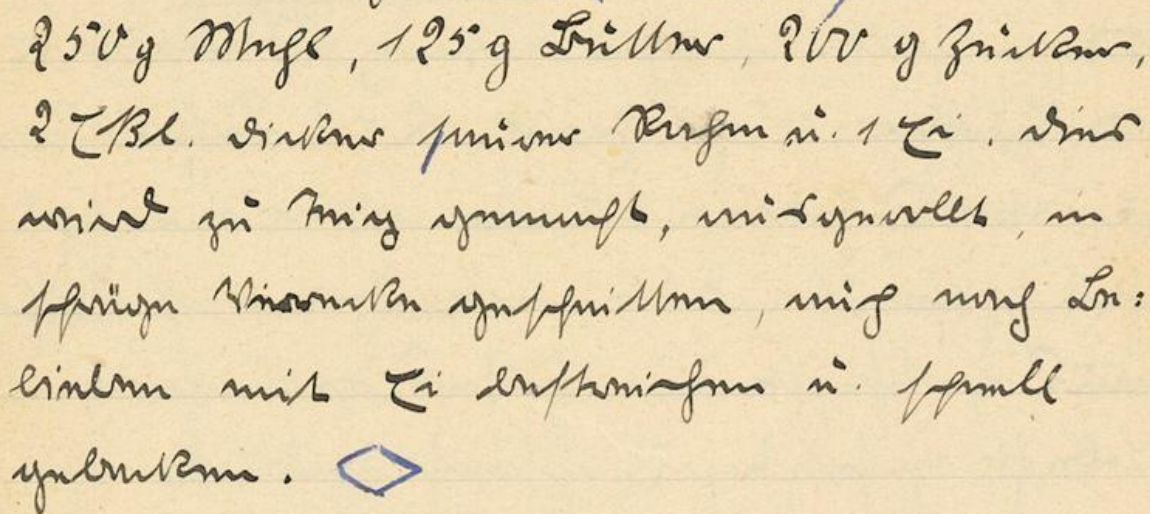 250 g Mehl, 125 g Butter, 200 g Zucker,
2 Eßl. dicker saurer Rahm u. 1 Ei. dies
wird zu Teig gemacht, ausgerollt, in
schräge Vierecke geschnitten, auch nach Be:
lieben mit Ei bestreichen u. schnell
gebacken.